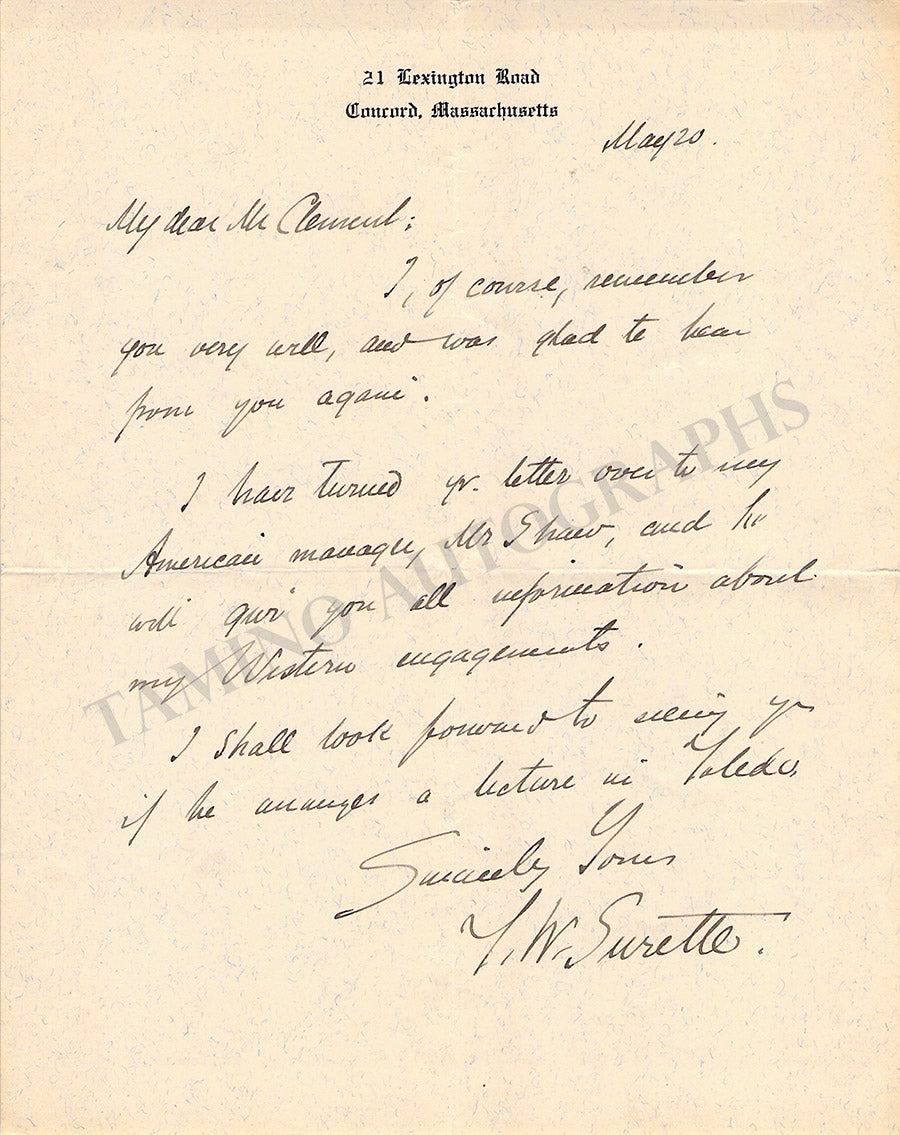 21 Lexington Road
Concord, Massachusetts
May 20.
My dear Mr Clement:
I, of course, remember
you very well, and was glad to hear
from you again.
I have turned yr. letter over to my
American manager, Mr Shaw, and he
will give you all information about
my Western engagements.
I shall look forward to seeing yr
if he arranges a lecture in Toledo.
Sincerely Yours
T. W. Surette.
TAMINO AUTOGRAPHS